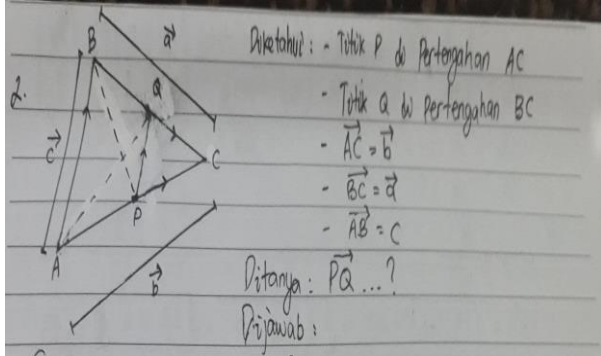 2.
B
a⃗
Q
c⃗
C
P
A
b⃗
Diketahui : - Titik P di Pertengahan AC
- Titik Q di Pertengahan BC
- AC⃗ = b⃗
- BC⃗ = a⃗
- AB⃗ = C
Ditanya : PQ⃗ ... ?
Dijawab :